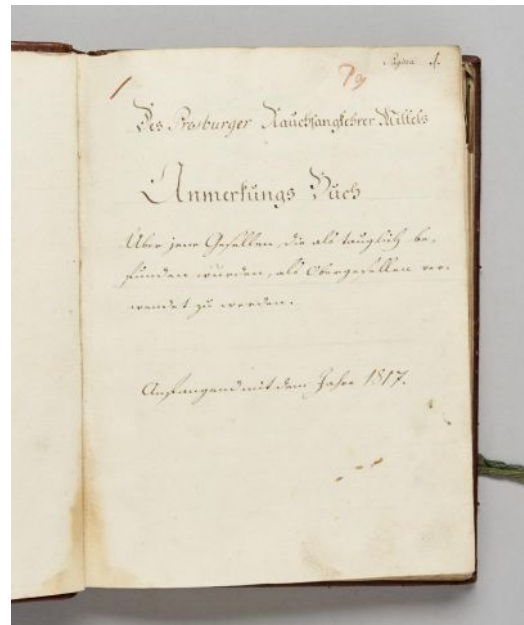 Pagina 1.
79
Des Presburger Rauchfangkehrer Mittels
Anmerkungs Buch
Über jene Gesellen, die als tauglich be-
funden wurden, als Obergesellen ver-
wendet zu werden.
Anfangend mit dem Jahre 1817.